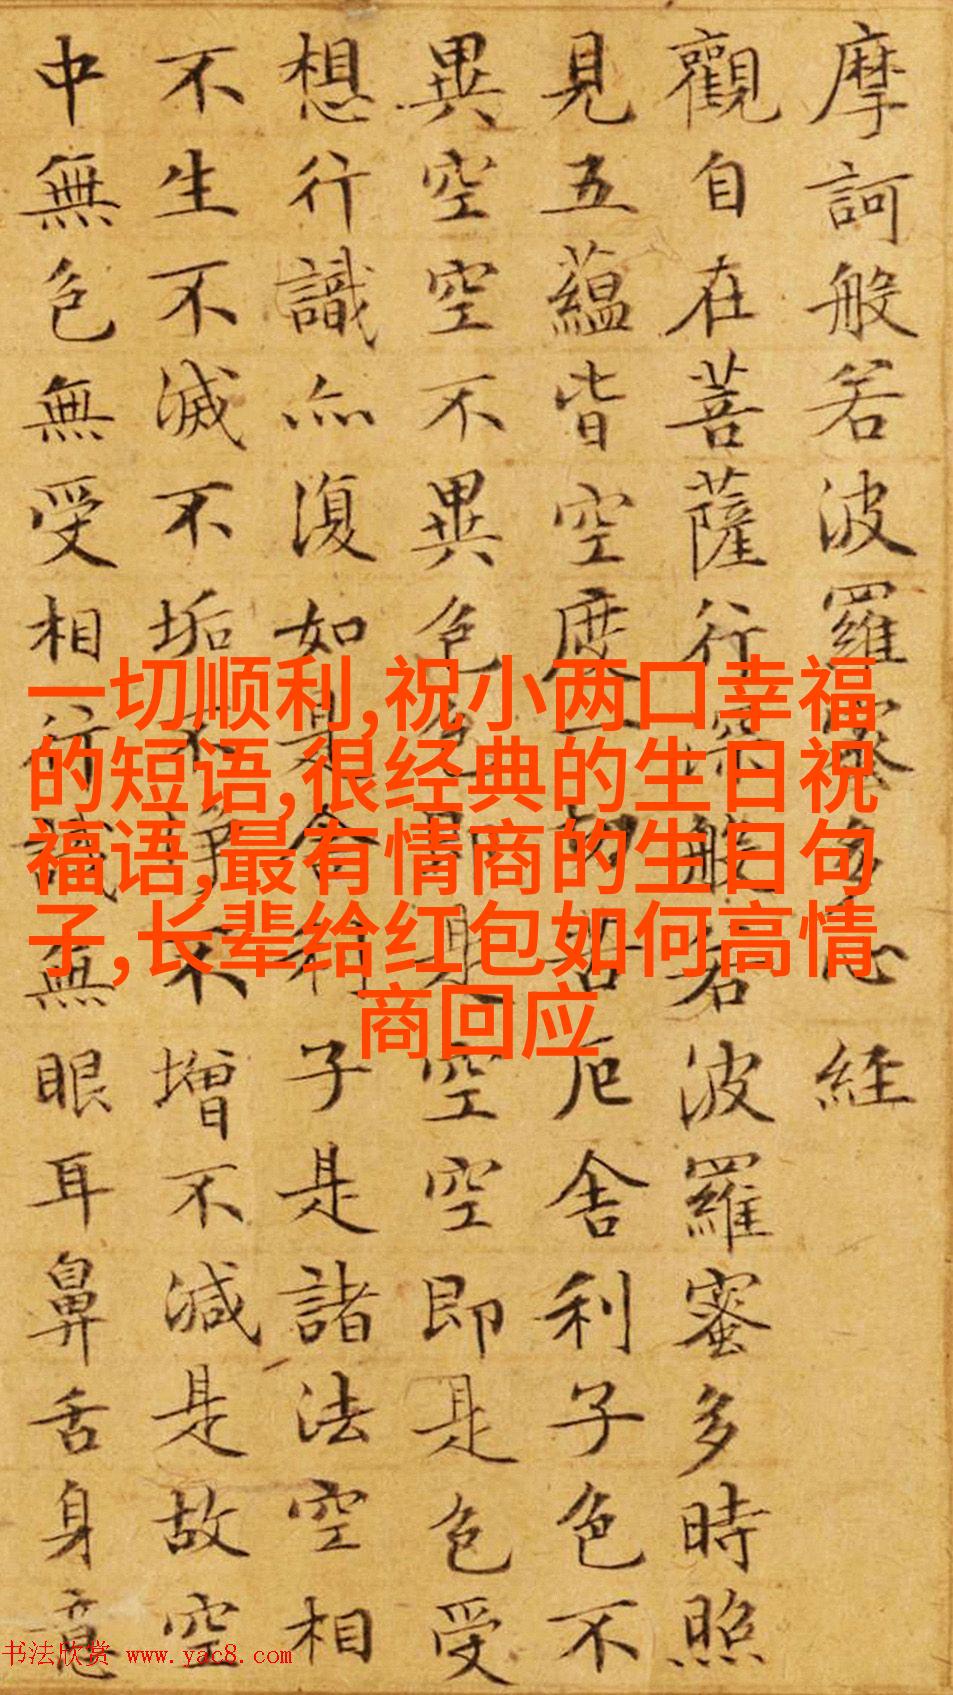 摩訶般若波羅蜜多心經
觀自在菩薩行深般若波羅蜜多時照
見五蘊皆空度一切苦厄舍利子色不
異空空不異色色即是空空即是色受
想行識亦復如是舍利子是諸法空相
不生不滅不垢不淨不增不減是故空
中無色無受相行識無眼耳鼻舌身意
一切顺利,祝小两口幸福
的短语,很经典的生日祝
福语,最有情商的生日句
子,长辈给红包如何高情
商回应
书法欣赏 www.yac8.com